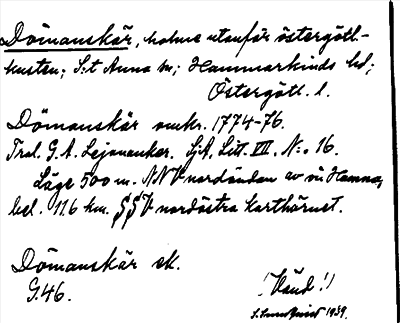 Dömanskär, holme utanför östergötl.-
kusten; S:t Anna sn; Hammarkinds hd;
Östergötl. l.
Dömanskär omkr. 1774-76.
Trol. G. A. Lejonancker. SjA, Litt. VII. N:o 16.
Läge 500 m. NNV nordändan av ön Hamna,
bel. 11,6 km. SSV nordöstra karthörnet.
Dömanskär ek.
G.46.
(Händ!)
1939.